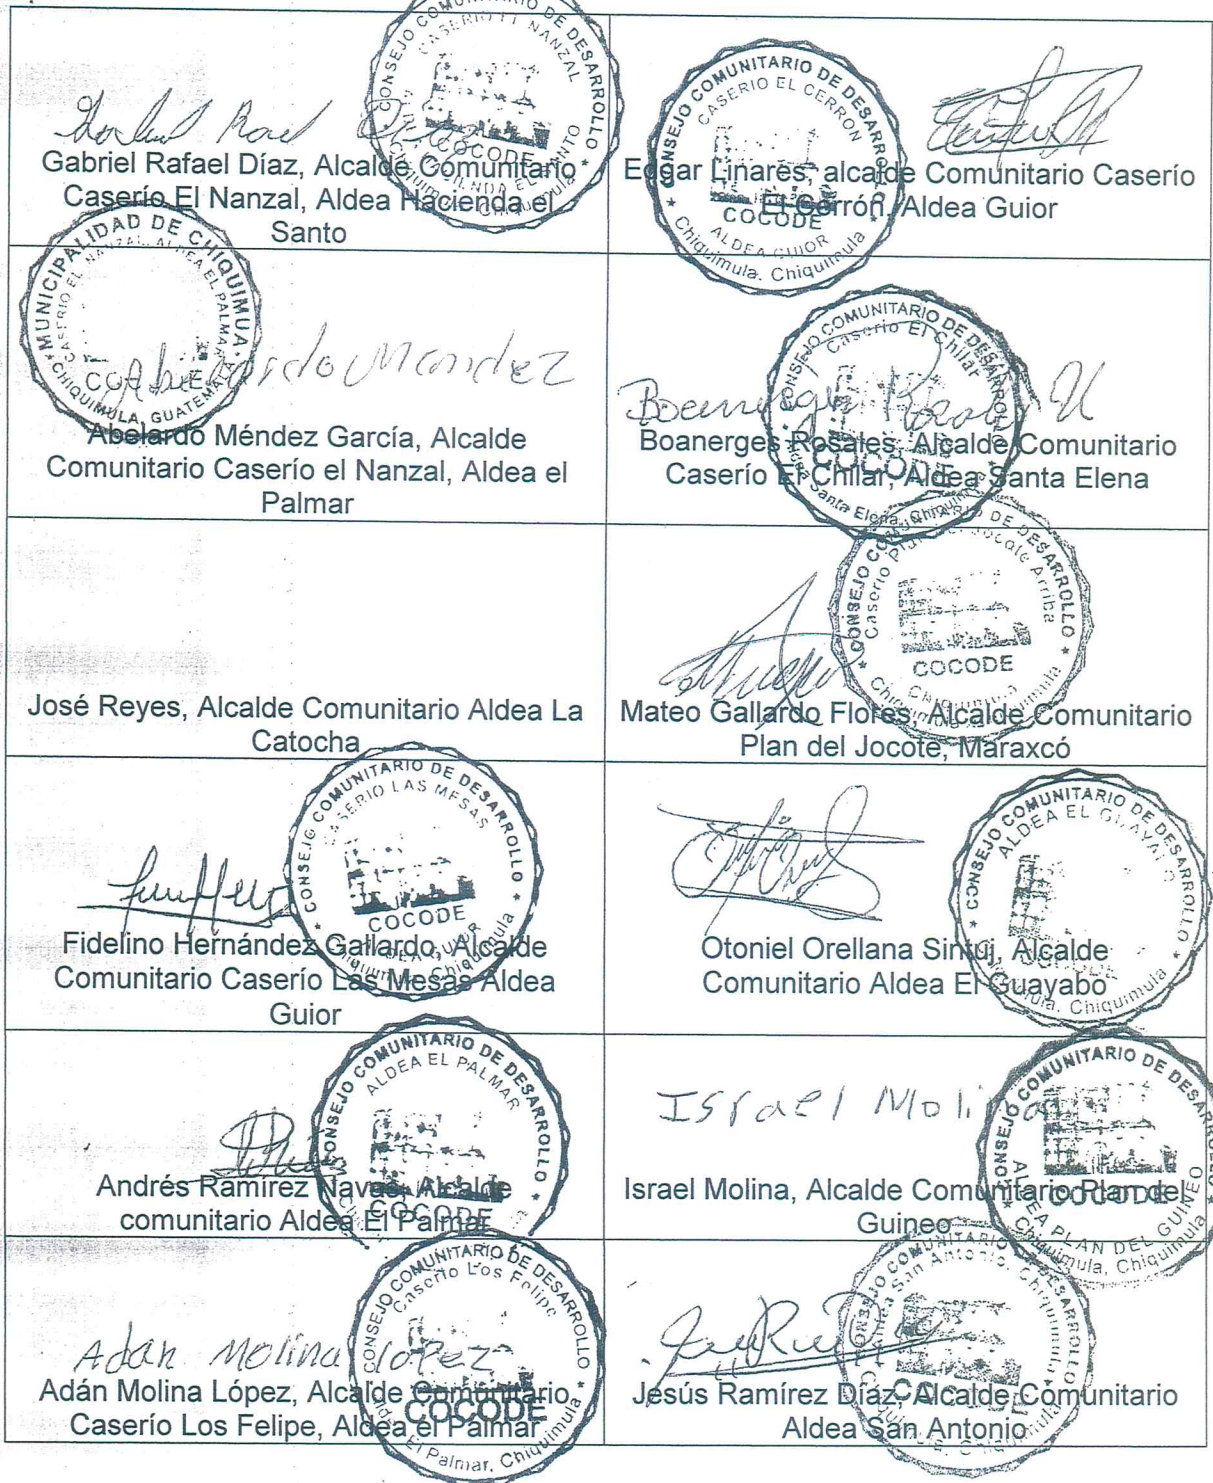 CONSEJO COMUNITARIO DE DESARROLLO
CASERIO EL NANZAL
COCODE
Gabriel Rafael Díaz, Alcalde Comunitario
Caserío El Nanzal, Aldea Hacienda el
Santo
CONSEJO COMUNITARIO DE DESARROLLO
CASERIO EL CERRON
COCODE
ALDEA GUIOR
Chiquimula, Chiquimula
Edgar Linares, alcalde Comunitario Caserío
El Cerrón, Aldea Guior
MUNICIPALIDAD DE CHIQUIMUA
CASERIO EL NANZAL, ALDEA EL PALMAR
CHIQUIMULA, GUATEMALA
Abelardo Mendez
Abelardo Méndez García, Alcalde
Comunitario Caserío el Nanzal, Aldea el
Palmar
CONSEJO COMUNITARIO DE DESARROLLO
Caserio El Chilar
COCODE
Aldea Santa Elena, Chiquimula
Boanerges Rosales, Alcalde Comunitario
Caserío El Chilar, Aldea Santa Elena
José Reyes, Alcalde Comunitario Aldea La
Catocha
CONSEJO COMUNITARIO DE DESARROLLO
Jocote Arriba
COCODE
Mateo Gallardo Flores, Alcalde Comunitario
Plan del Jocote, Maraxcó
CONSEJO COMUNITARIO DE DESARROLLO
CASERIO LAS MESAS
COCODE
ALDEA GUIOR
Fidelino Hernández Gallardo, Alcalde
Comunitario Caserío Las Mesas Aldea
Guior
CONSEJO COMUNITARIO DE DESARROLLO
ALDEA EL GUAYABO
COCODE
Chiquimula, Chiquimula
Otoniel Orellana Sintuj, Alcalde
Comunitario Aldea El Guayabo
CONSEJO COMUNITARIO DE DESARROLLO
ALDEA EL PALMAR
COCODE
Andrés Ramírez Navas, Alcalde
comunitario Aldea El Palmar
Israel Molina
CONSEJO COMUNITARIO DE DESARROLLO
COCODE
ALDEA PLAN DEL GUINEO
Chiquimula, Chiquimula
Israel Molina, Alcalde Comunitario Plan del
Guineo
CONSEJO COMUNITARIO DE DESARROLLO
Caserio Los Felipe
COCODE
Aldea El Palmar, Chiquimula
Adan Molina lopez
Adán Molina López, Alcalde Comunitario
Caserío Los Felipe, Aldea el Palmar
CONSEJO COMUNITARIO DE DESARROLLO
Aldea San Antonio, Chiquimula
COCODE
Jesús Ramírez Díaz, Alcalde Comunitario
Aldea San Antonio